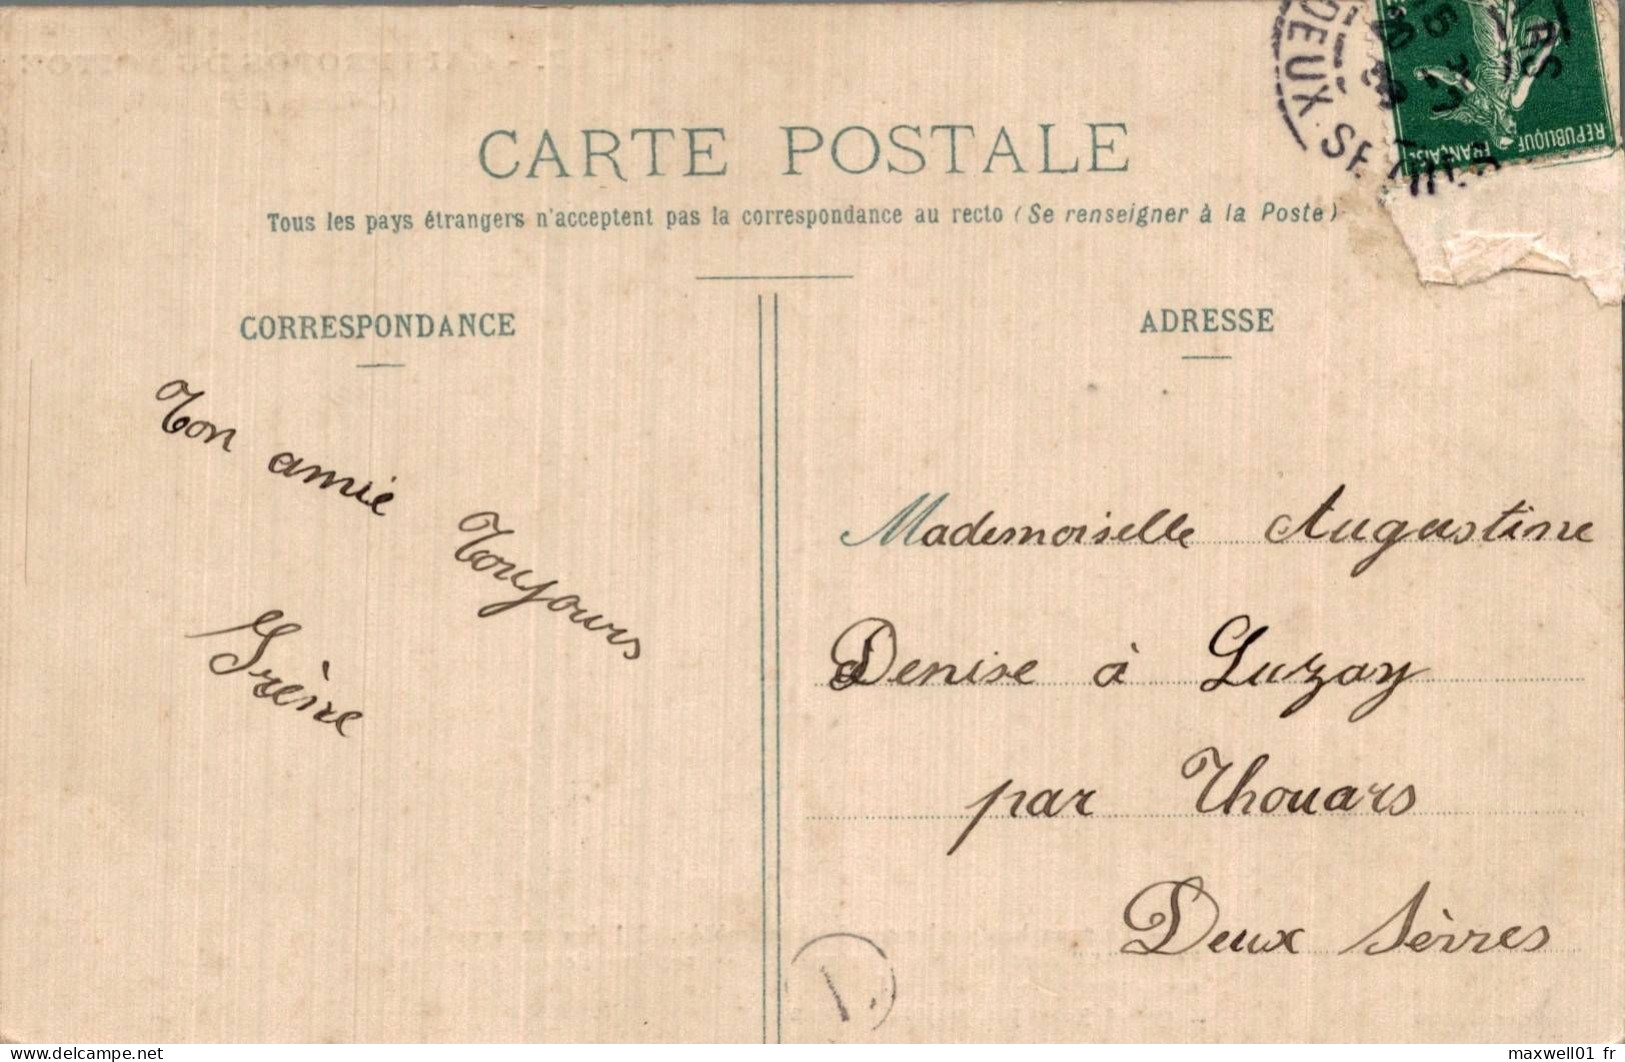 CARTE POSTALE
Tous les pays étrangers n'acceptent pas la correspondance au recto (Se renseigner à la Poste)
CORRESPONDANCE
ADRESSE
Ton amie Toujours
Irène
Mademoiselle Augustine
Denise à Luzay
par Thouars
Deux Sèvres
REPUBLIQUE
FRANÇAISE
DEUX-SEVRES
maxwell01 fr